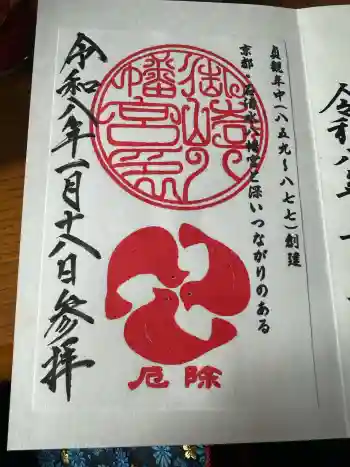 貞観年中(八五九〜八七七)創建
京都・石清水八幡宮と深いつながりのある
御崎八
幡宮
厄除
令和八年一月十八日参拝
令和八年一